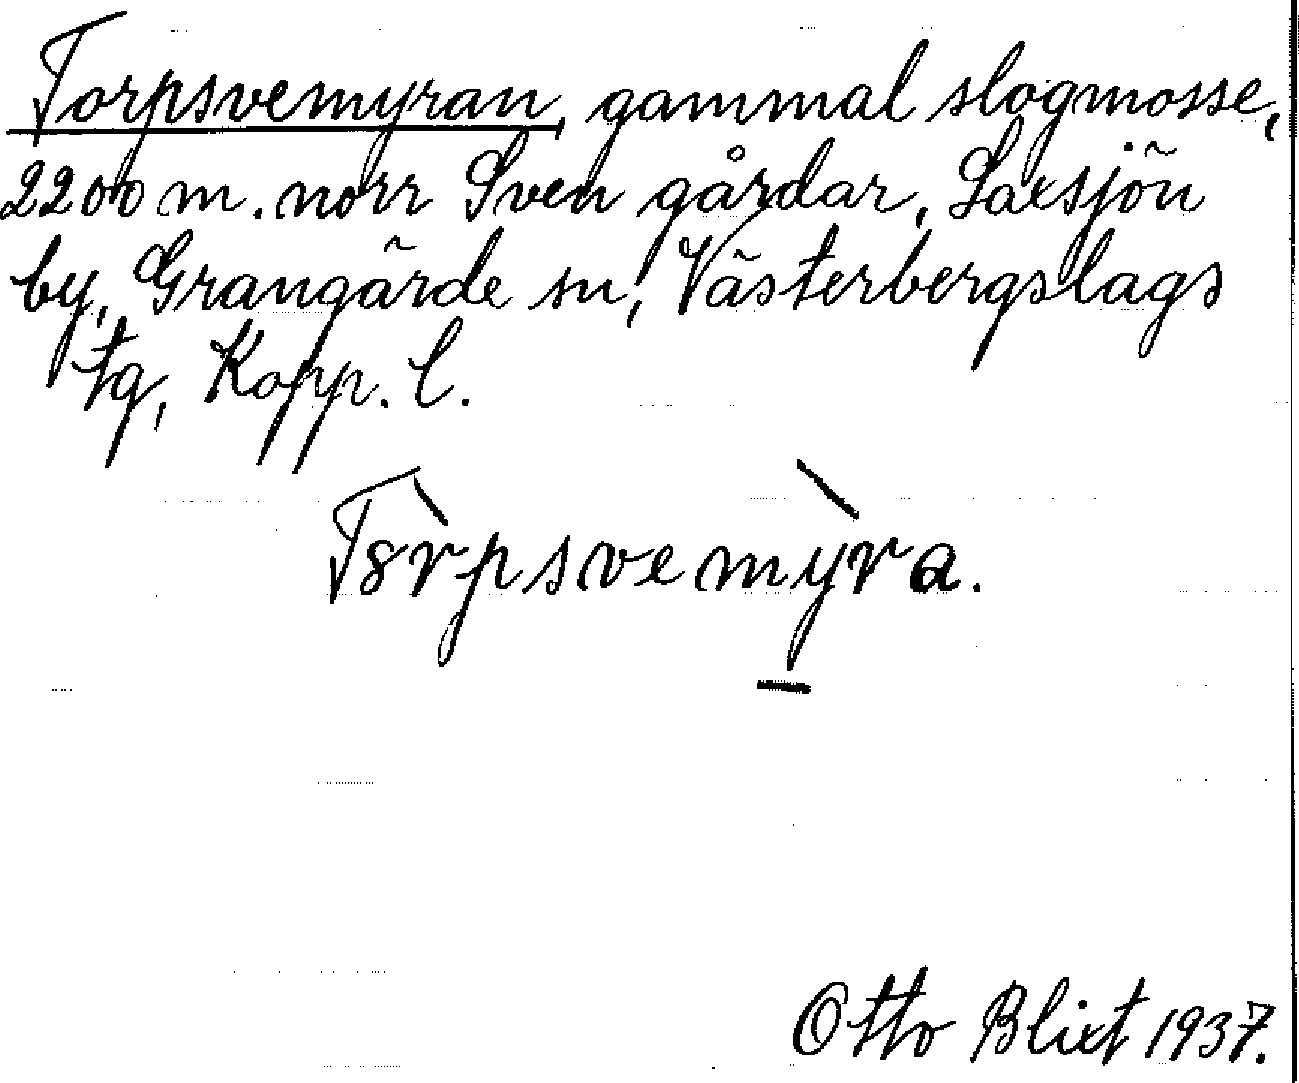 Torpsvemyran, gammal slogmosse,
2200 m. norr Sven gårdar, Saxsjön
by, Grangärde sn, Västerbergslags
tg, Kopp. l.
T8r̀psvemyr̀a.
Otto Blixt 1937.